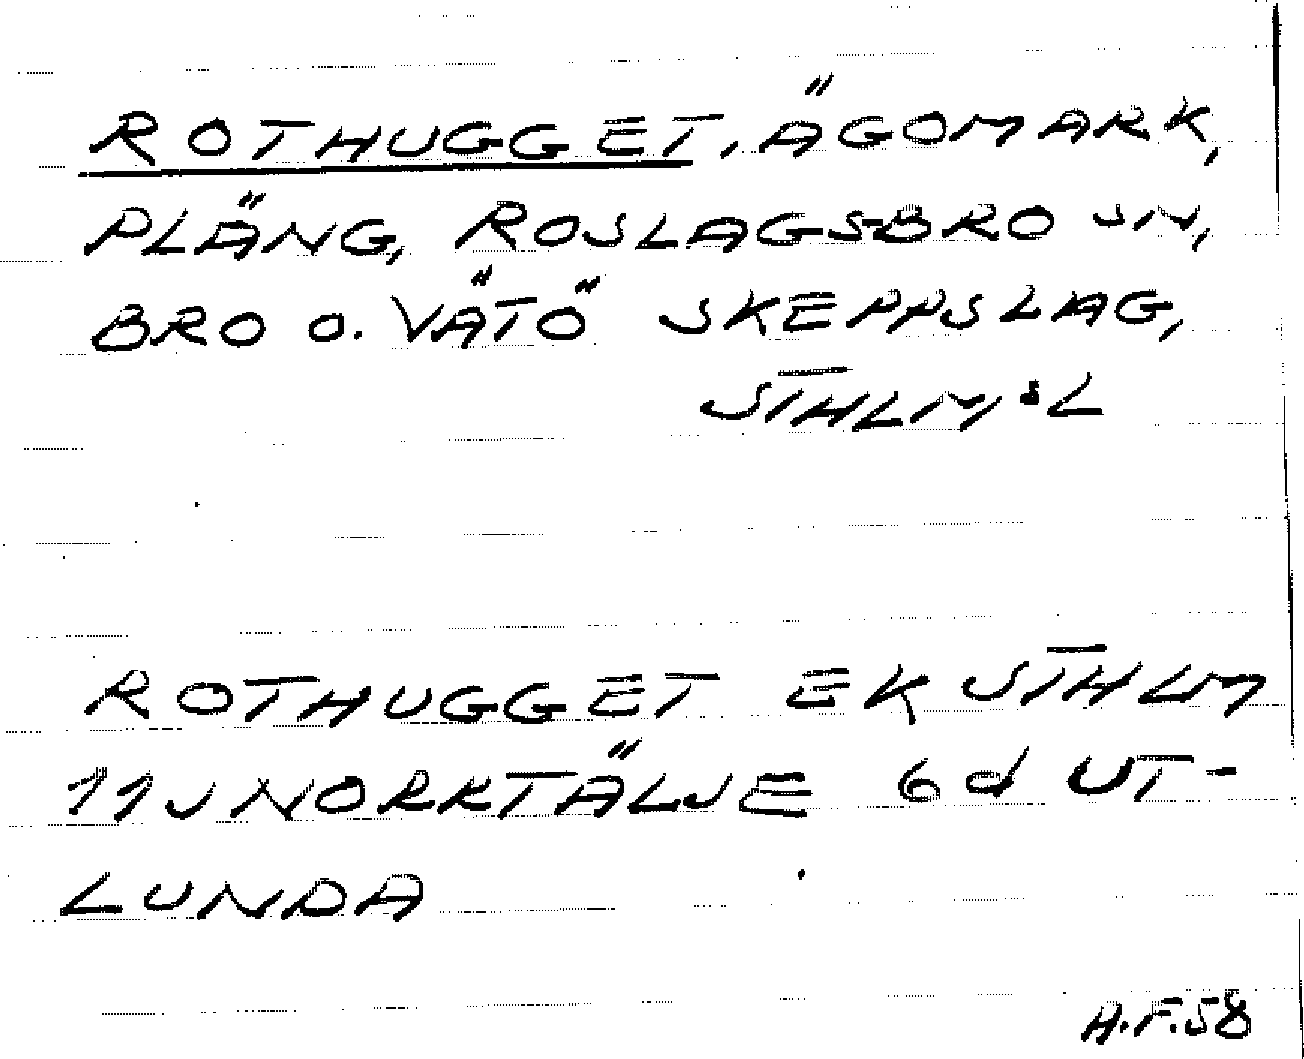 ROTHUGGET, ÄGOMARK,
PLÄNG, ROSLAGSBRO SN,
BRO O. VÄTÖ SKEPPSLAG,
STHLM:S L
ROTHUGGET EK STHLM
11J NORRTÄLJE 6d UT-
LUNDA
A.F.58